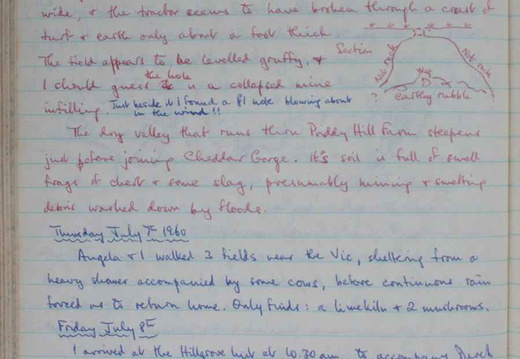 wide, & the tractor seems to have broken through a crust of
turf & earth only about a foot thick
The field appears to be levelled gruffy, &
I should guess the hole is a collapsed mine
infilling. Just beside it I found a £1 note blowing about
in the wind!!
Section
Solid rock
Solid rock
earthy rubble
?
?
The dry valley that runs thro Priddy Hill Farm steepens
just before joining Cheddar Gorge. It's soil is full of small
frags of chert & some slag, presumably mining & smelting
debris washed down by floods.
Thursday July 7th 1960
Angela & I walked 3 fields near the Vic, sheltering from a
heavy shower accompanied by some cows, before continuous rain
forced us to return home. Only finds: a limekiln & 2 mushrooms.
Friday July 8th
I arrived at the Hillgrove hut at 10.30 am to accompany Derek